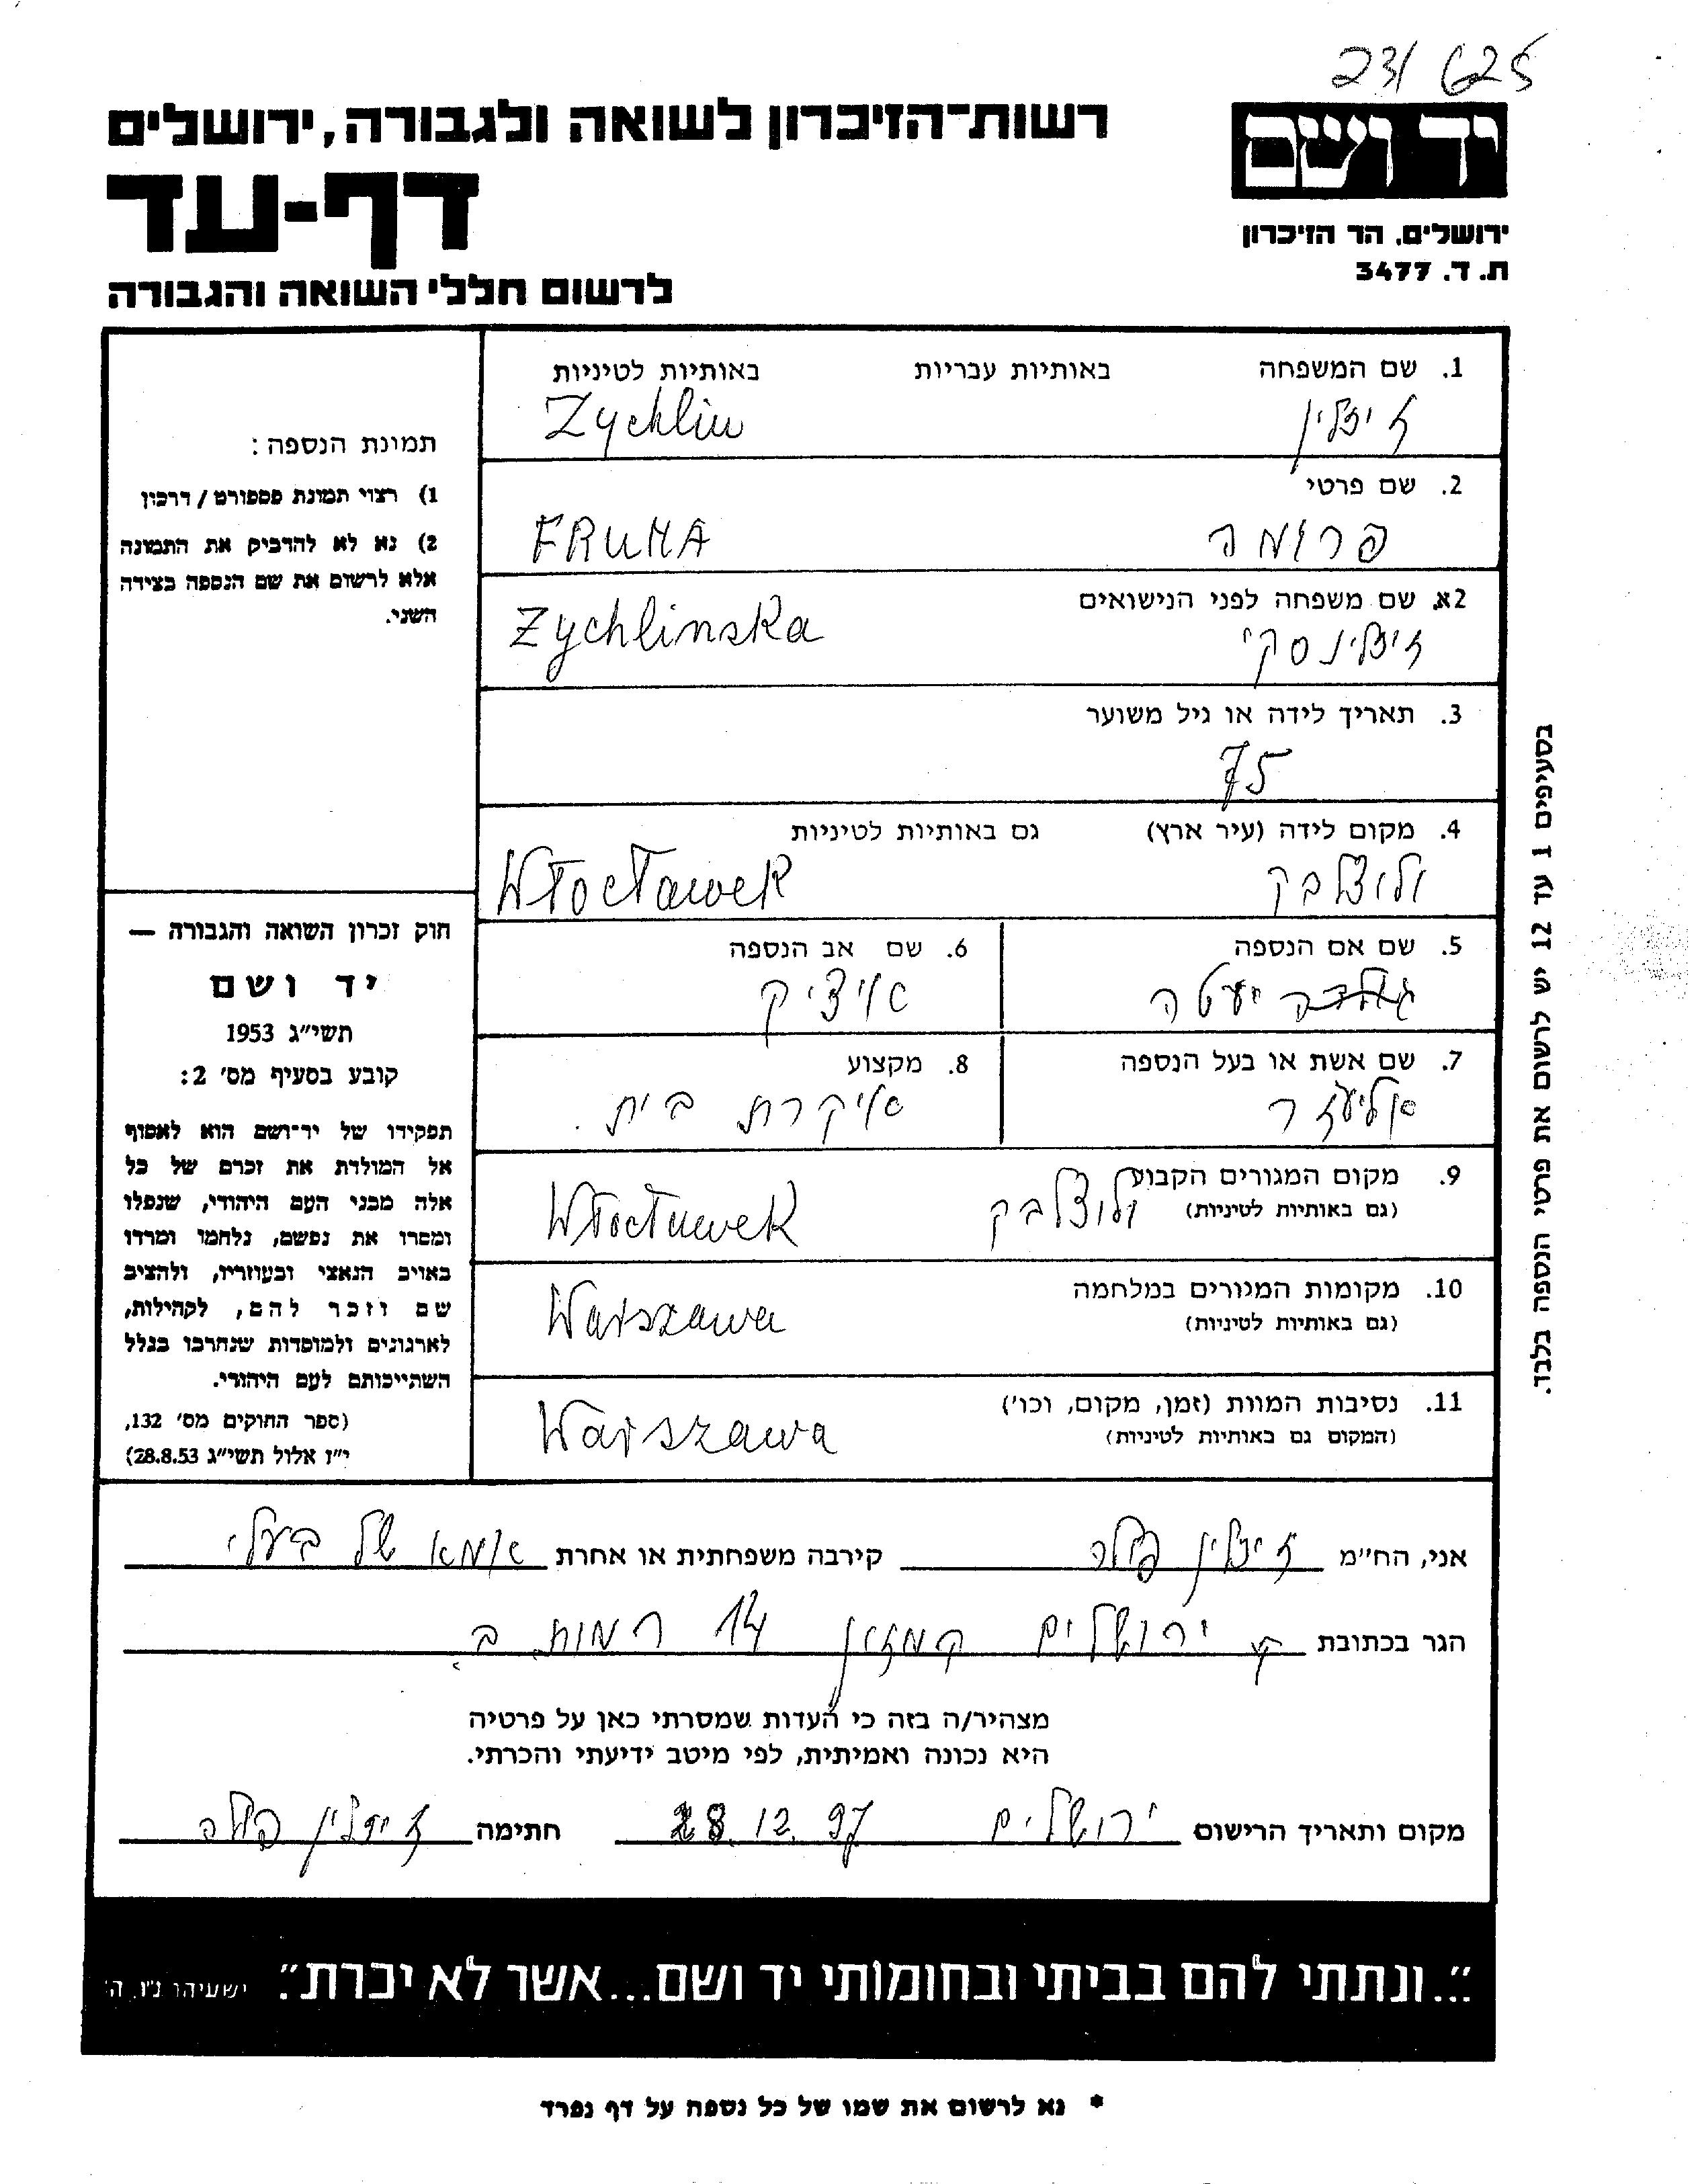 231 625
יד ושם
ירושלים, הר הזיכרון
ת. ד. 3477
רשות־הזיכרון לשואה ולגבורה, ירושלים
דף-עד
לרשום חללי השואה והגבורה
1. שם המשפחה באותיות עבריות באותיות לטיניות
זיכלין Zychlin
2. שם פרטי
פרומה FRUMA
2א. שם משפחה לפני הנישואים
זיכלינסקי Zychlinska
3. תאריך לידה או גיל משוער
75
4. מקום לידה (עיר ארץ) גם באותיות לטיניות
ולוצלבק Włocławek
5. שם אם הנספה 6. שם אב הנספה
יעטה איציק
7. שם אשת או בעל הנספה 8. מקצוע
אליעזר עיקרת בית
9. מקום המגורים הקבוע
(גם באותיות לטיניות) ולוצלבק Włocławek
10. מקומות המגורים במלחמה
(גם באותיות לטיניות) Warszawa
11. נסיבות המוות (זמן, מקום, וכו')
(המקום גם באותיות לטיניות) Warszawa
תמונת הנספה:
1) רצוי תמונת פספורט / דרכון
2) נא לא להדביק את התמונה
אלא לרשום את שם הנספה בצידה
השני.
חוק זכרון השואה והגבורה —
יד ושם
תשי"ג 1953
קובע בסעיף מס' 2:
תפקידו של יד־ושם הוא לאסוף
אל המולדת את זכרם של כל
אלה מבני העם היהודי, שנפלו
ומסרו את נפשם, נלחמו ומרדו
באויב הנאצי ובעוזריו, ולהציב
שם וזכר להם, לקהילות,
לארגונים ולמוסדות שנחרבו בגלל
השתייכותם לעם היהודי.
(ספר החוקים מס' 132,
י"ז אלול תשי"ג 28.8.53)
בסעיפים 1 עד 12 יש לרשום את פרטי הנספה בלבד.
אני, הח"מ זיכלין פולה קירבה משפחתית או אחרת אמא של בעלי
הגר בכתובת ירושלים קמזון 14 רמות ב
מצהיר/ה בזה כי העדות שמסרתי כאן על פרטיה
היא נכונה ואמיתית, לפי מיטב ידיעתי והכרתי.
מקום ותאריך הרישום ירושלים 28.12.97 חתימה זיכלין פולה
"...ונתתי להם בביתי ובחומותי יד ושם...אשר לא יכרת". ישעיהו נ"ו, ה'
* נא לרשום את שמו של כל נספה על דף נפרד